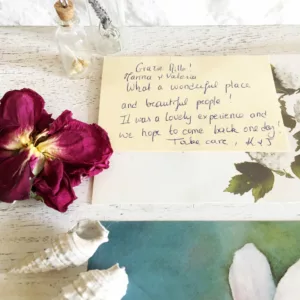 Grazie Mille!
Marina & Valeria
What a wonderful place
and beautiful people!
It was a lovely experience and
we hope to come back one day!
Take care,